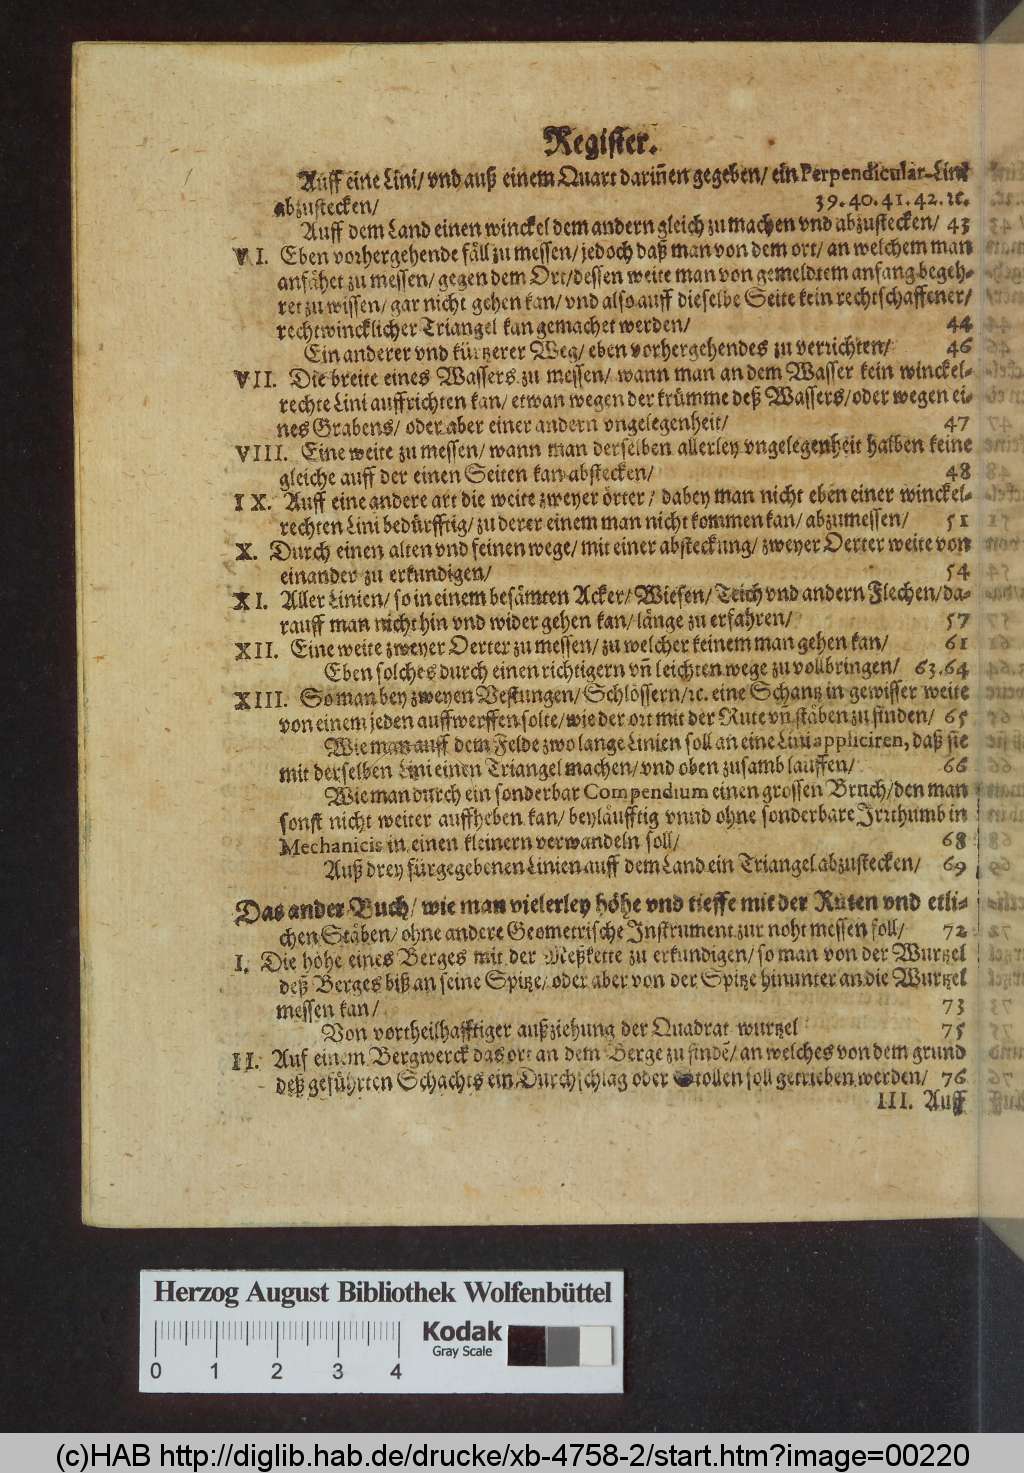 Register.
Auff eine Lini/ vnd auß einem Quart dariñen gegeben/ ein Perpendicular-Lini
abzustecken/ 39. 40. 41. 42. ꝛc.
Auff dem Land einen winckel dem andern gleich zu machen vnd abzustecken/ 43
VI. Eben vorhergehende fäll zu messen/ jedoch daß man von dem ort/ an welchem man
anfähet zu messen/ gegen dem Ort/ dessen weite man von gemeldtem anfang begeh-
ret zu wissen/ gar nicht gehen kan/ vnd also auff dieselbe Seite kein rechtschaffener/
rechtwincklicher Triangel kan gemachet werden/ 44
Ein anderer vnd kürtzerer Weg/ eben vorhergehendes zu verrichten/ 46
VII. Die breite eines Wassers zu messen/ wann man an dem Wasser kein winckel-
rechte Lini auffrichten kan/ etwan wegen der krümme deß Wassers/ oder wegen ei-
nes Grabens/ oder aber einer andern vngelegenheit/ 47
VIII. Eine weite zu messen/ wann man derselben allerley vngelegenheit halben keine
gleiche auff der einen Seiten kan abstecken/ 48
IX. Auff eine andere art die weite zweyer örter/ dabey man nicht eben einer winckel-
rechten Lini bedürfftig/ zu derer einem man nicht kommen kan/ abzumessen/ 51
X. Durch einen alten vnd feinen wege/ mit einer absteckung/ zweyer Oerter weite von
einander zu erkundigen/ 54
XI. Aller Linien/ so in einem besämten Acker/ Wiesen/ Teich vnd andern Flechen/ da-
rauff man nicht hin vnd wider gehen kan/ länge zu erfahren/ 57
XII. Eine weite zweyer Oerter zu messen/ zu welcher keinem man gehen kan/ 61
Eben solches durch einen richtigern vñ leichten wege zu vollbringen/ 63. 64
XIII. So man bey zweyen Vestungen/ Schlössern/ ꝛc. eine Schantz in gewisser weite
von einem jeden auffwerffen solte/ wie der ort mit der Rute vñ stäben zu finden/ 65
Wie man auff dem Felde zwo lange Linien soll an eine Lini appliciren, daß sie
mit derselben Lini einen Triangel machen/ vnd oben zusamb lauffen/ 66
Wie man durch ein sonderbar Compendium einen grossen Bruch/ den man
sonst nicht weiter auffheben kan/ beyläufftig vnnd ohne sonderbare Irrthumb in
Mechanicis in einen kleinern verwandeln soll/ 68
Auß drey fürgegebenen Linien auff dem Land ein Triangel abzustecken/ 69
Das ander Buch/ wie man vielerley höhe vnd tieffe mit der Ruten vnd etli-
chen Stäben/ ohne andere Geometrische Instrument zur noht messen soll/ 72
I. Die höhe eines Berges mit der Meßkette zu erkundigen/ so man von der Wurtzel
deß Berges biß an seine Spitze/ oder aber von der Spitze hinunter an die Wurtzel
messen kan/ 73
Von vortheilhafftiger außziehung der Quadrat wurtzel 75
II. Auf einem Bergwerck das ort an dem Berge zu findẽ/ an welches von dem grund
deß geführten Schachts ein Durchschlag oder Stollen soll getrieben werden/ 76
III. Auff
Herzog August Bibliothek Wolfenbüttel
Kodak
Gray Scale
0 1 2 3 4
(c)HAB http://diglib.hab.de/drucke/xb-4758-2/start.htm?image=00220